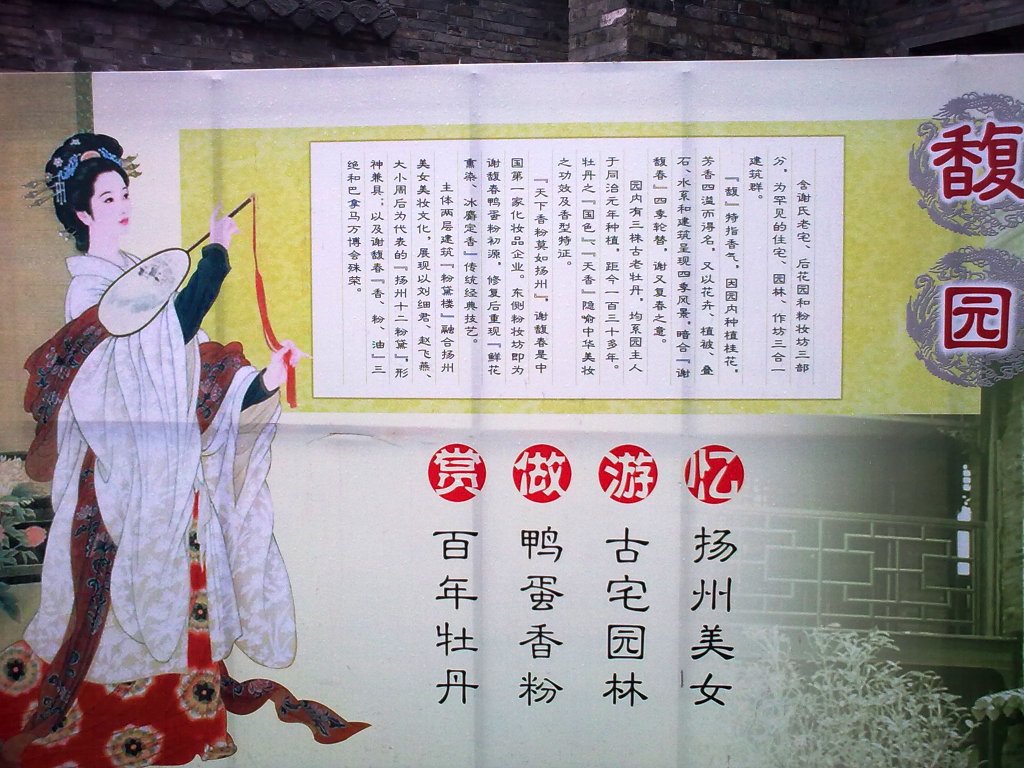 馥园
含谢氏老宅、后花园和粉妆坊三部
分，为罕见的住宅、园林、作坊三合一
建筑群。
『馥』特指香气，因园内种植桂花，
芳香四溢而得名。又以花卉、植被、叠
石、水系和建筑呈现四季风景，暗合『谢
馥春』四季轮替，谢又复春之意。
园内有三株古老牡丹，均系园主人
于同治元年种植，距今一百三十多年。
牡丹之『国色』、『天香』隐喻中华美妆
之功效及香型特征。
『天下香粉莫如扬州』，谢馥春是中
国第一家化妆品企业。东侧粉妆坊即为
谢馥春鸭蛋粉初源，修复后重现『鲜花
熏染、冰麝定香』传统经典技艺。
主体两层建筑『粉黛楼』融合扬州
美女美妆文化，展现以刘细君、赵飞燕、
大小周后为代表的『扬州十二粉黛』，形
神兼具；以及谢馥春『香、粉、油』三
绝和巴拿马万博会殊荣。
忆扬州美女
游古宅园林
做鸭蛋香粉
赏百年牡丹